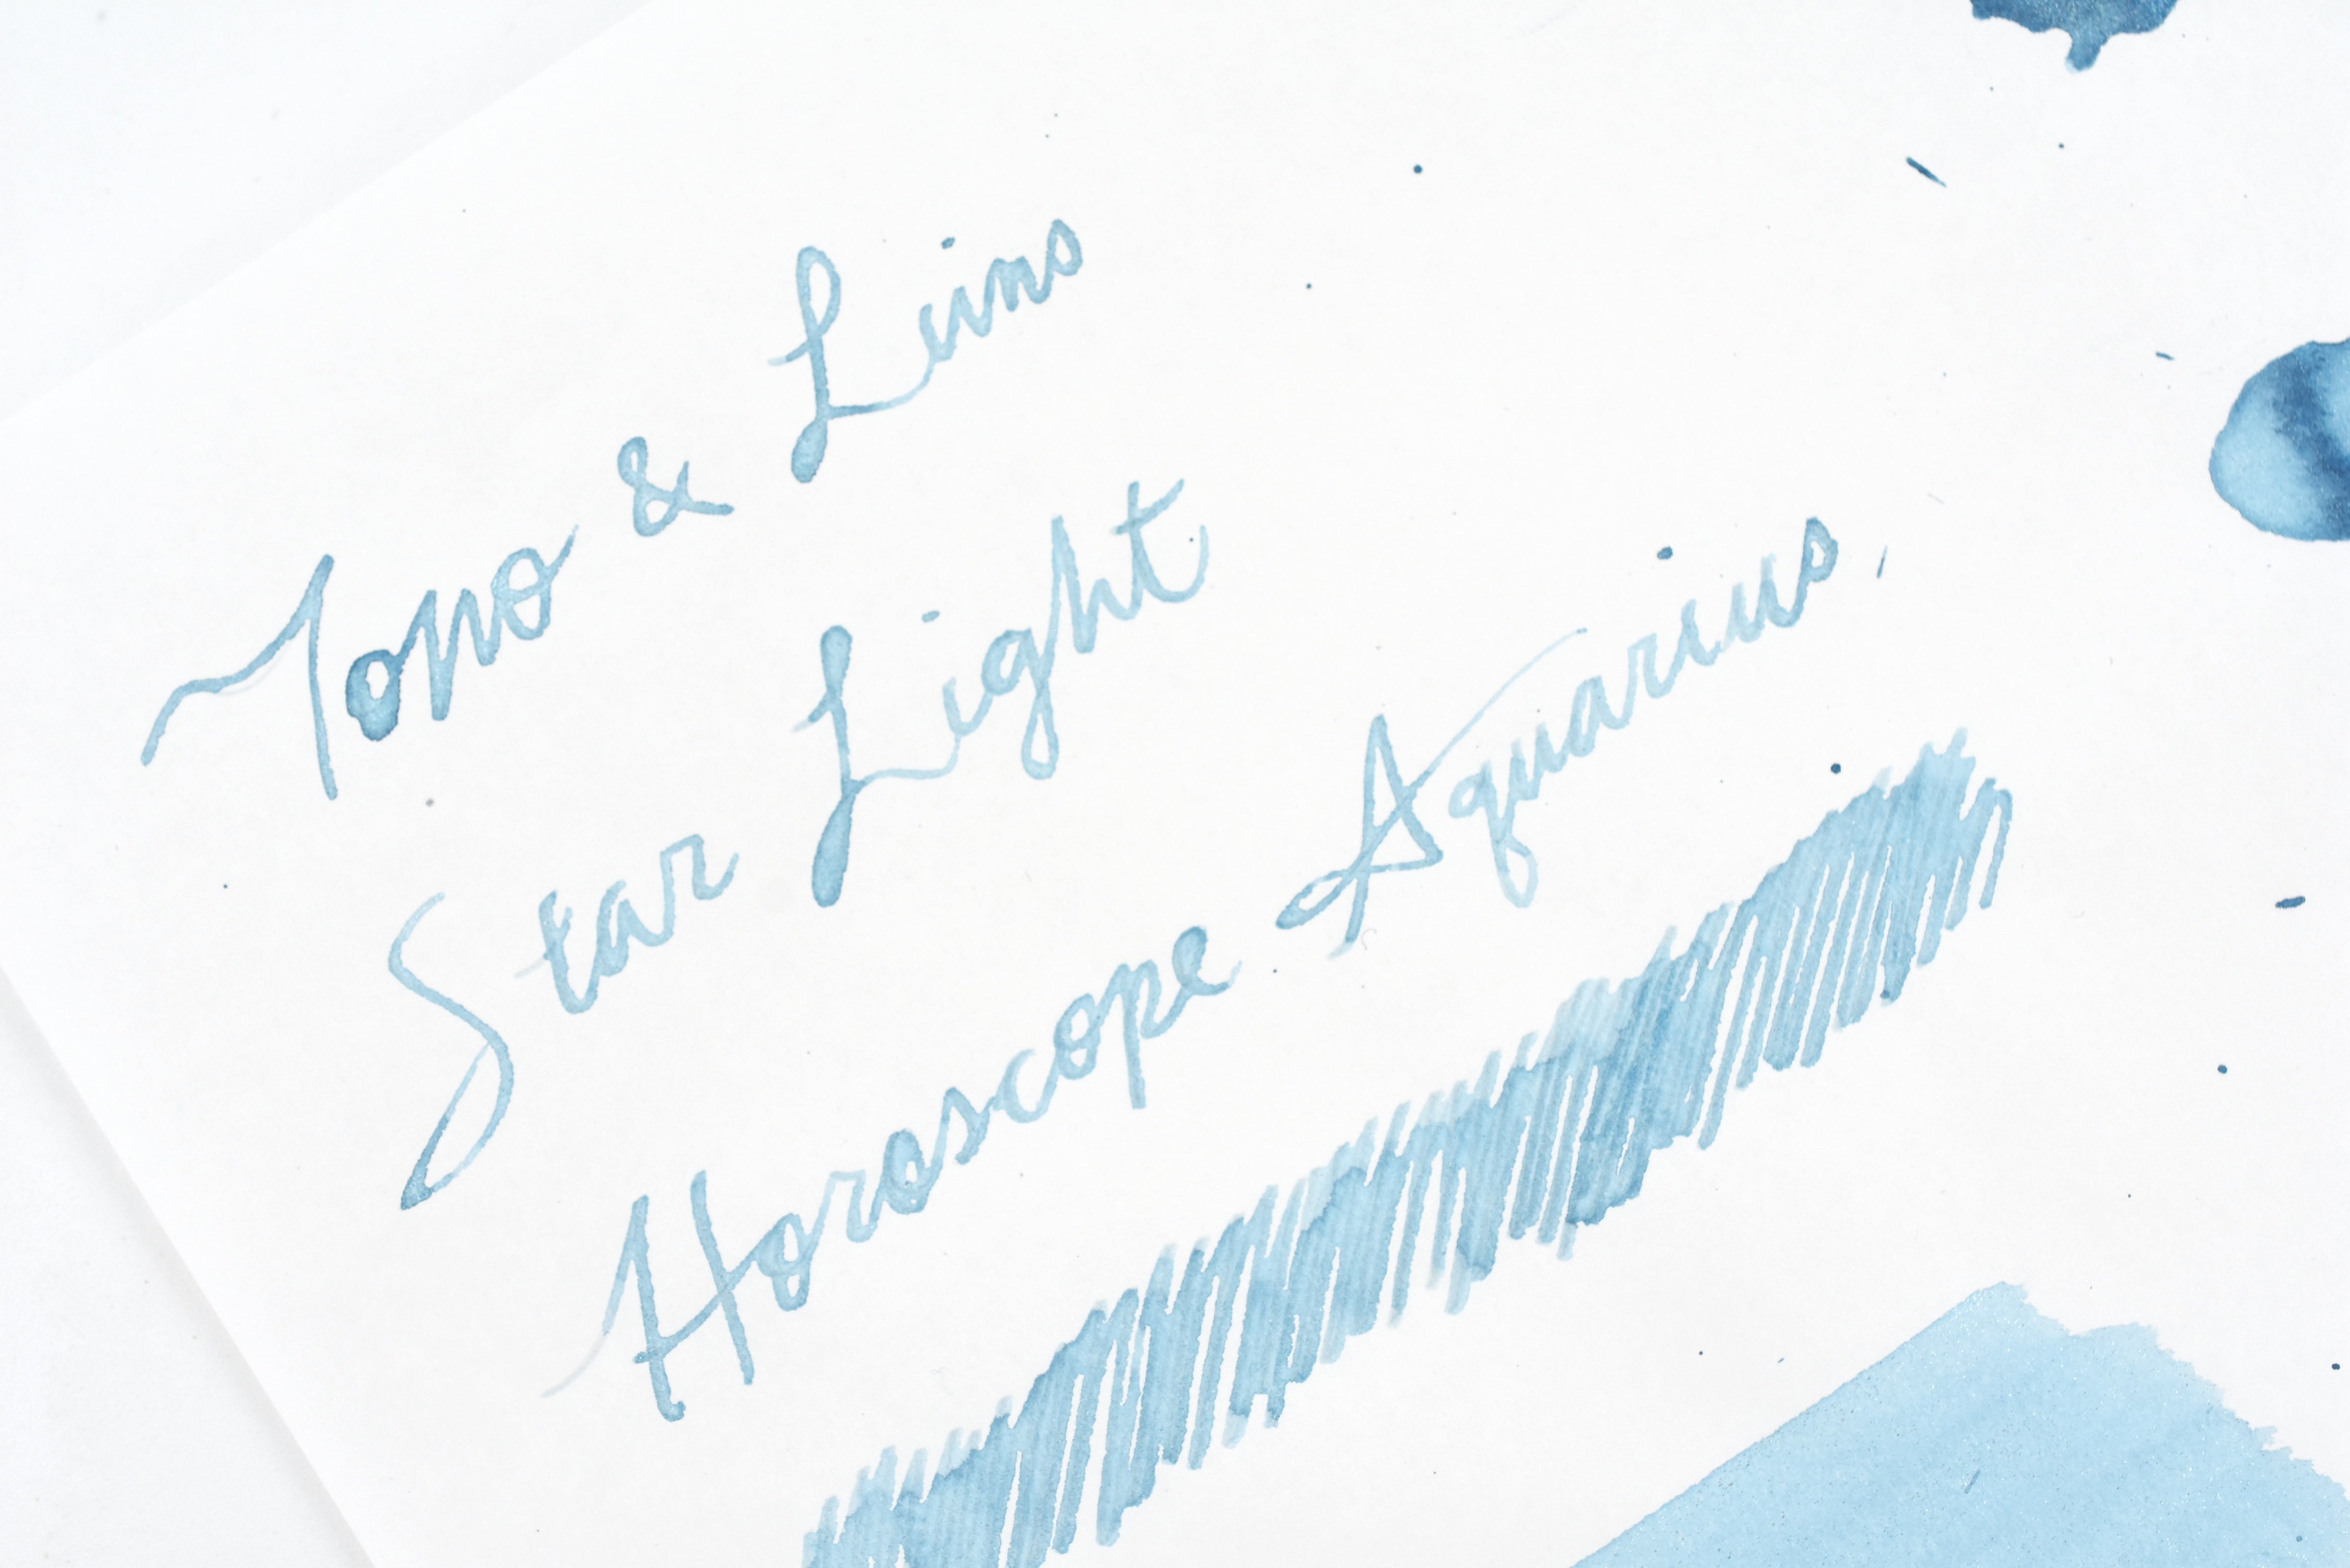 Tono & Lims
Star Light
Horoscope Aquarius,